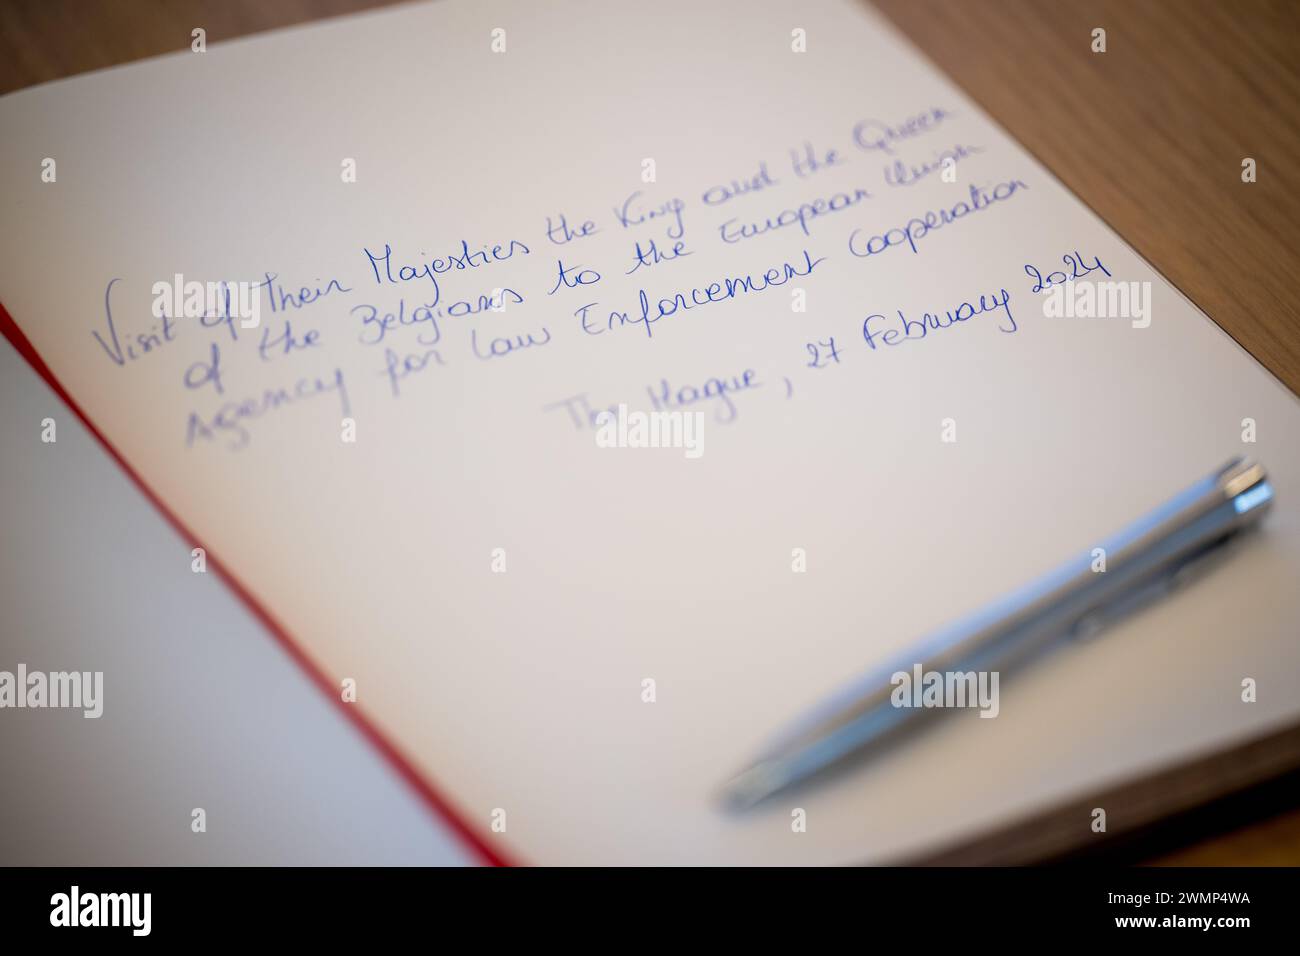 Visit of Their Majesties the King and the Queen
of the Belgians to the European Union
Agency for Law Enforcement Cooperation
The Hague, 27 February 2024
alamy
alamy
Image ID: 2WMP4WA
www.alamy.com